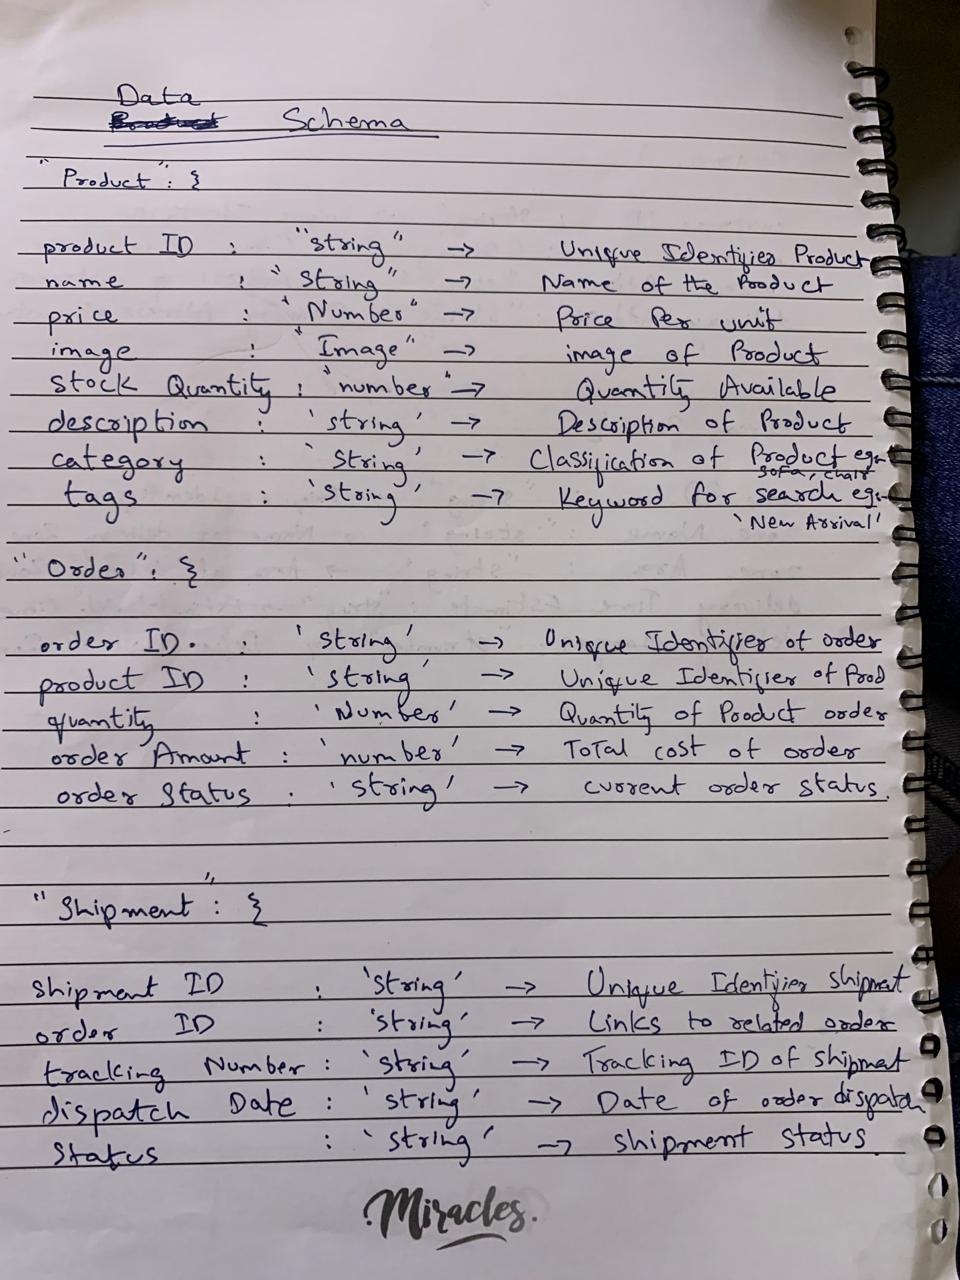 Data
Schema
"Product": {
product ID : "string" → Unique Identifier Product
name : "String" → Name of the Product
price : "Number" → Price Per unit
image : "Image" → image of Product
Stock Quantity : "number" → Quantity Available
description : 'string' → Description of Product
category : 'String' → Classification of Product eg:-
sofa, chair
tags : 'string' → Keyword for search eg:-
'New Arrival'
"Order": {
order ID. : 'string' → Unique Identifier of order
product ID : 'string' → Unique Identifier of Prod
quantity : 'Number' → Quantity of Product order
order Amount : 'number' → Total cost of order
order Status : 'string' → current order status.
"Shipment": {
Shipment ID : 'string' → Unique Identifier shipmat
order ID : 'string' → Links to related order
tracking Number : 'string' → Tracking ID of shipmat
dispatch Date : 'string' → Date of order dispatch
Status : 'string' → shipment status
Miracles.